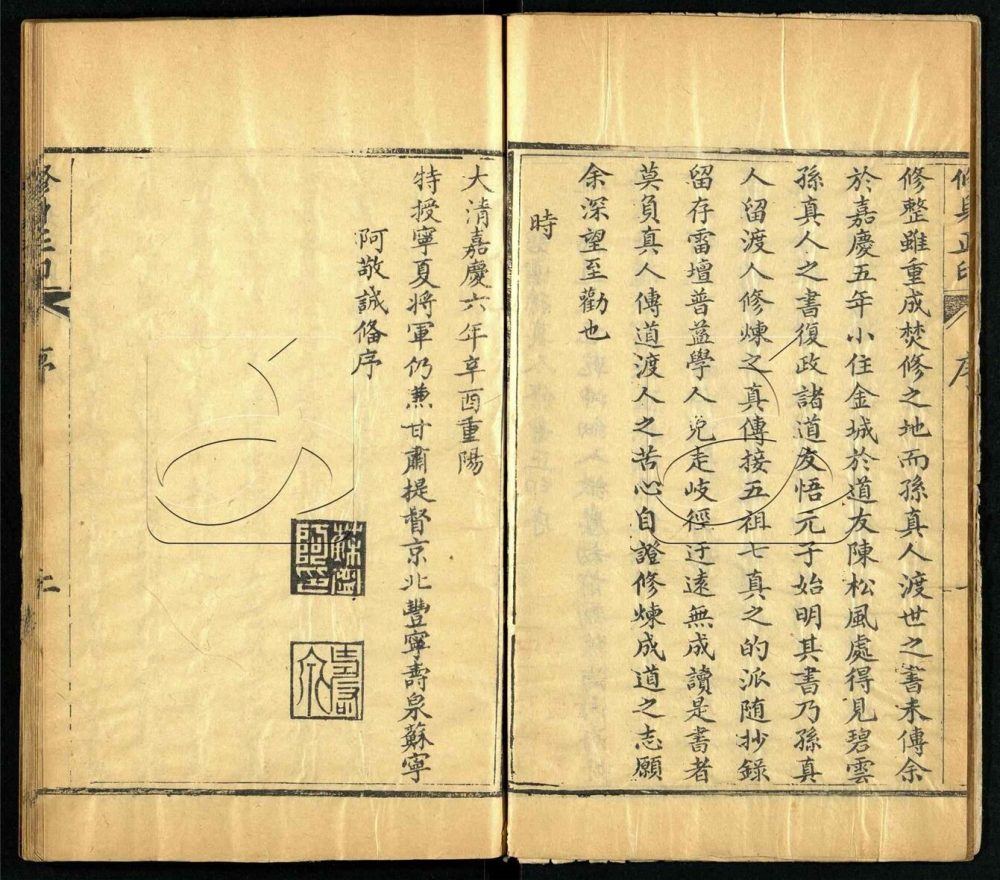 修真正印
序
一
修整雖重成焚修之地而孫真人渡世之書未傳余
於嘉慶五年小住金城於道友陳松風處得見碧雲
孫真人之書復政諸道友悟元子始明其書乃孫真
人留渡人修煉之真傳接五祖七真之的派随抄錄
留存雷壇普益學人免走岐徑迂遠無成讀是書者
莫負真人傳道渡人之苦心自證修煉成道之志願
余深望至勸也
時
大清嘉慶六年辛酉重陽
特授寧夏将軍仍兼甘肅提督京北豐寧壽泉蘇寧
阿敬誠俻序
蘇寧
阿印
壽泉
序